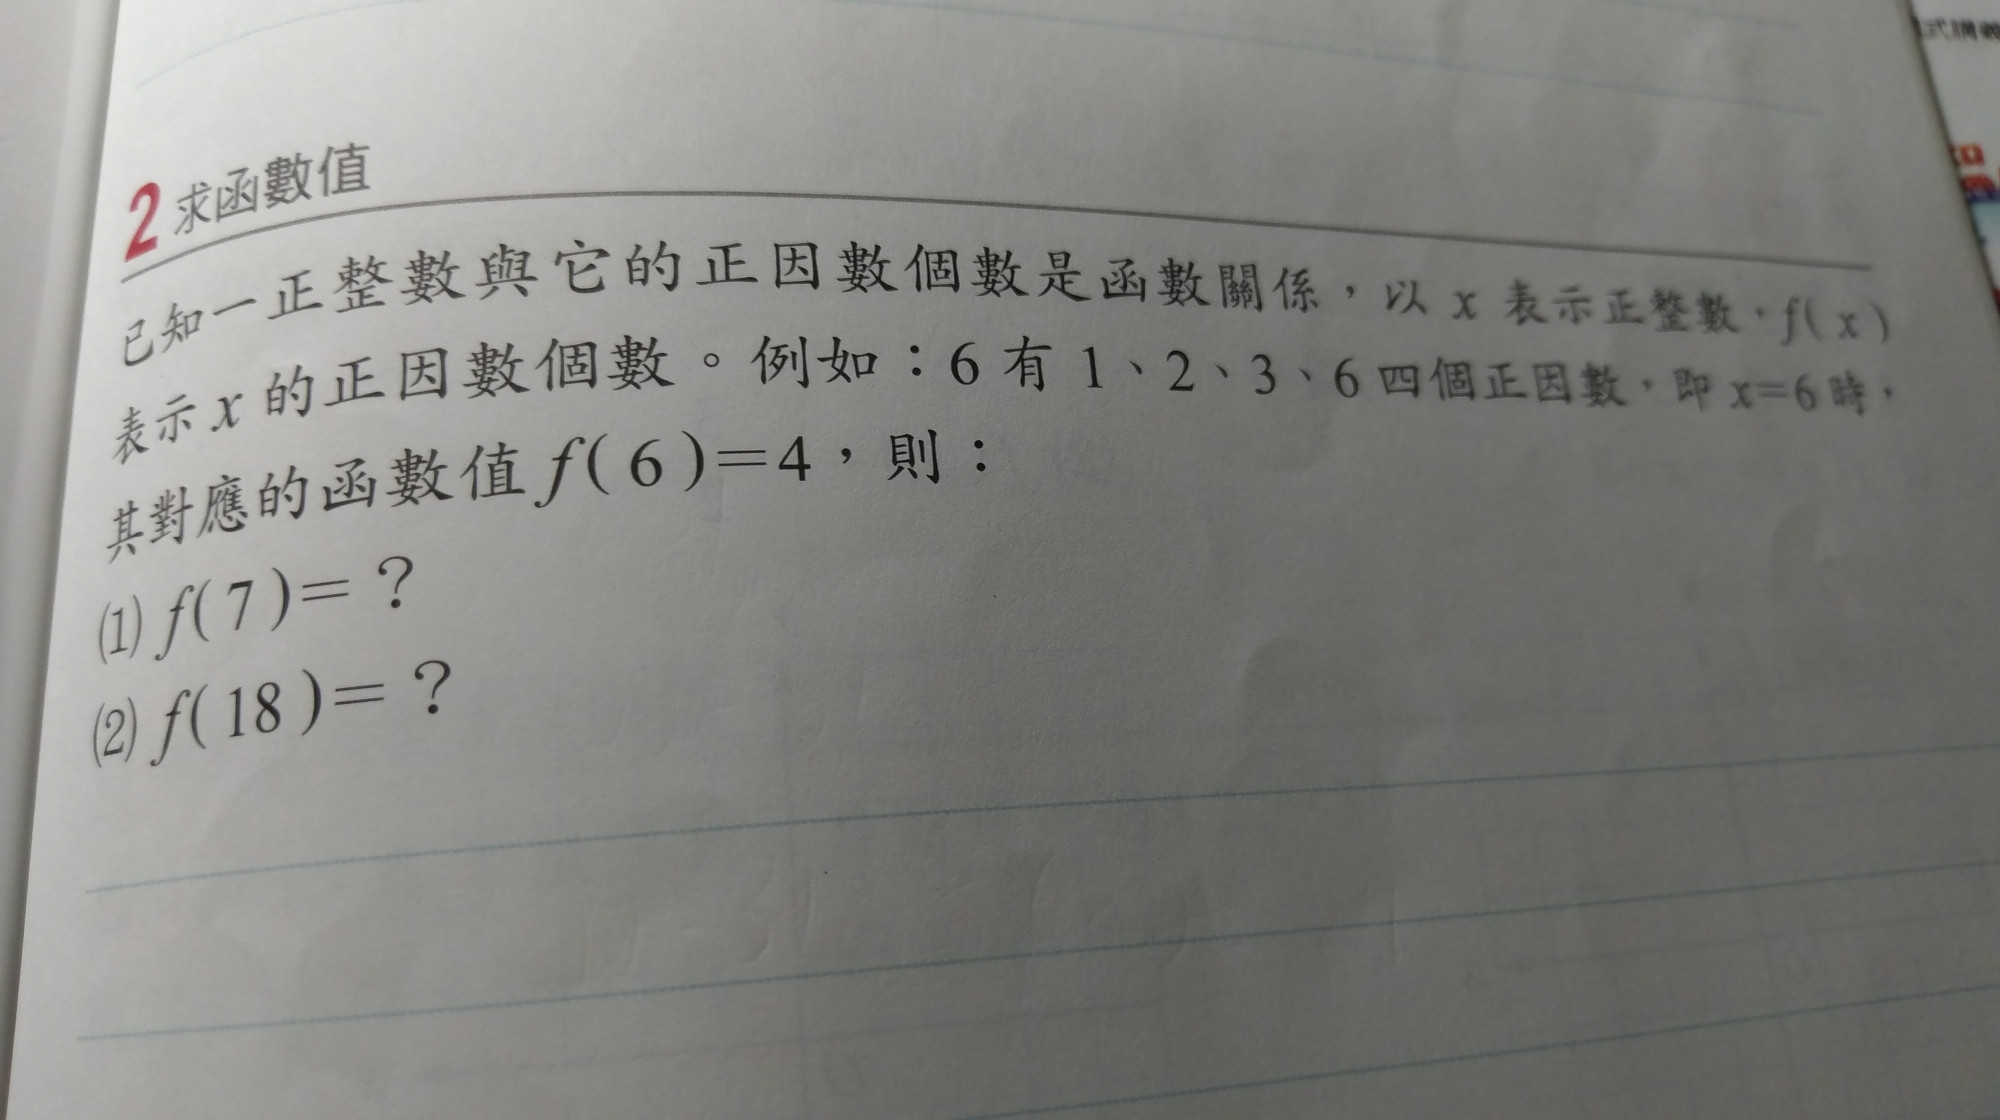 2 求函數值
已知一正整數與它的正因數個數是函數關係，以 x 表示正整數，f( x )
表示 x 的正因數個數。例如：6 有 1、2、3、6 四個正因數，即 x=6 時，
其對應的函數值 f( 6 )=4，則：
⑴ f( 7 )=？
⑵ f( 18 )=？